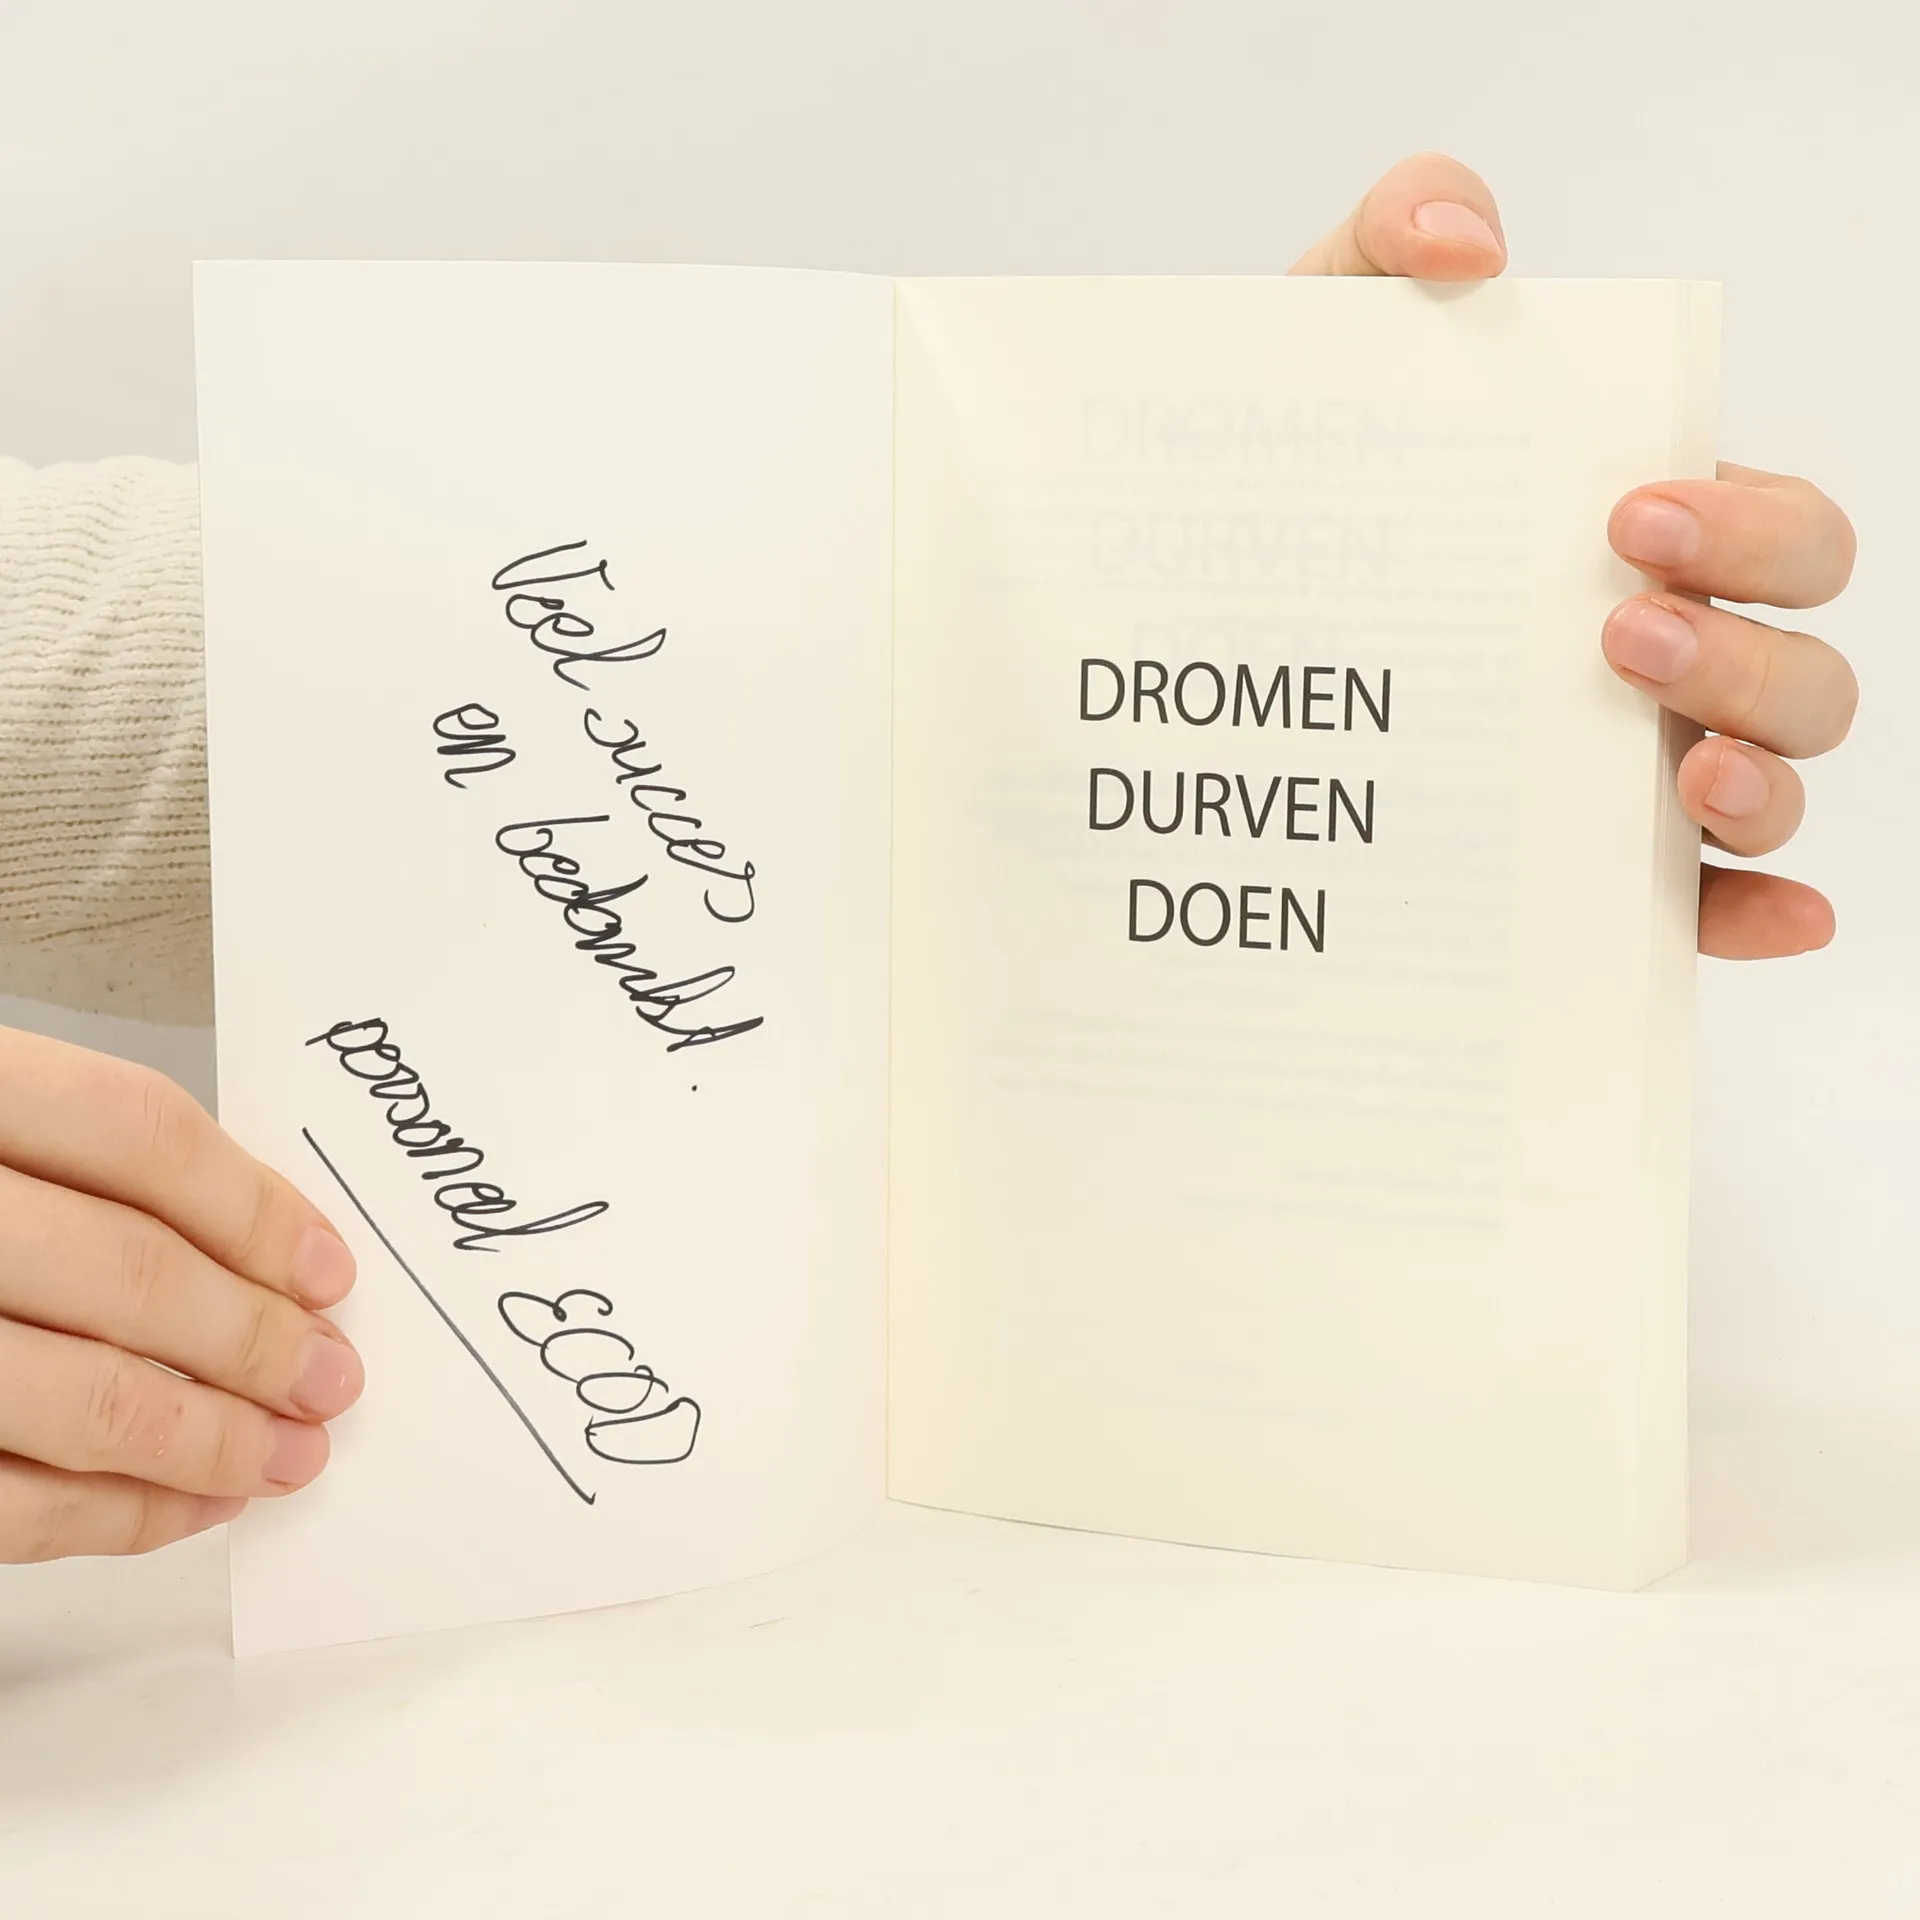 Veel succes
en bedankt.
personeel ECOD
DROMEN
DURVEN
DOEN